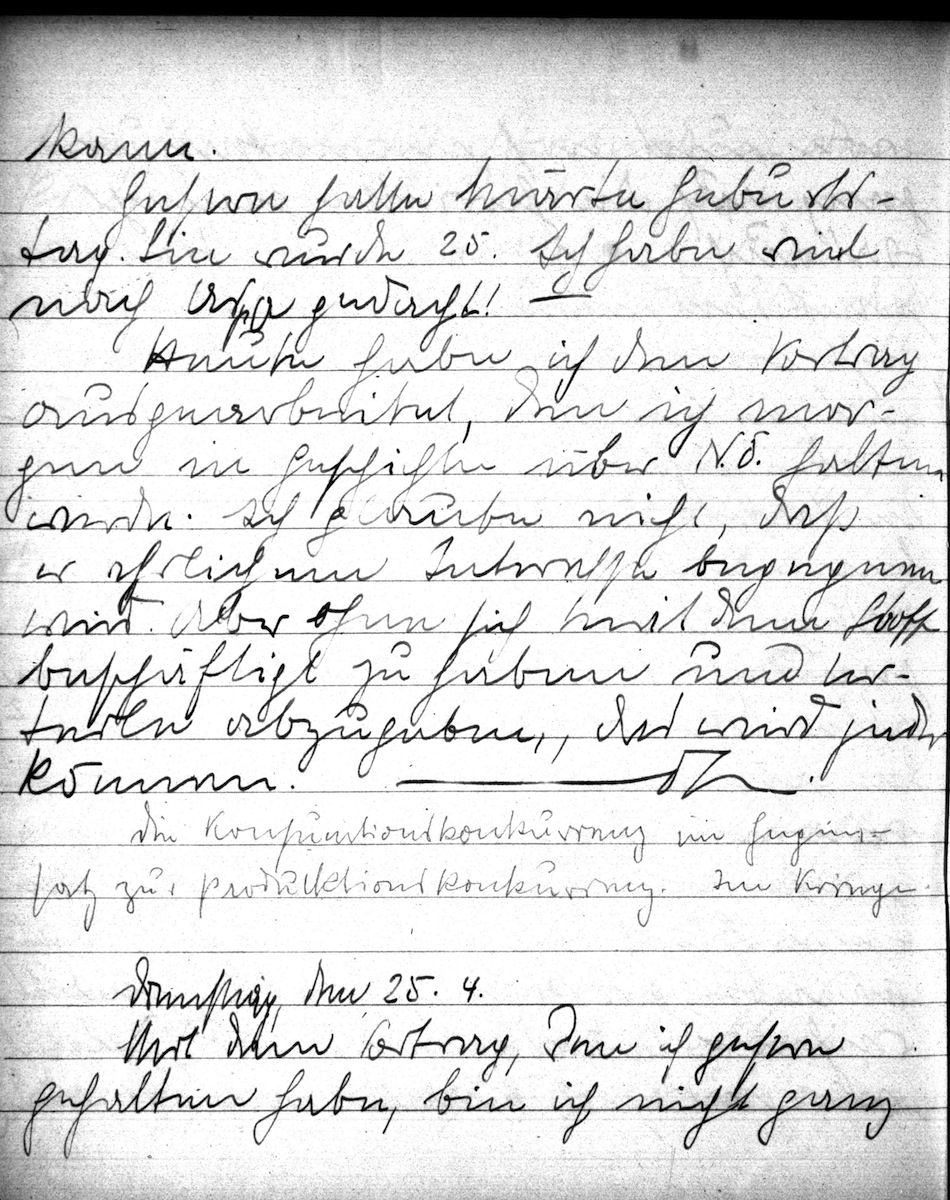 kann.
Gestern hatte Märta Geburts-
tag. Sie wurde 25. Ich habe viel
nach gedacht! —
Heute habe ich den Vortrag
ausgearbeitet, den ich mor-
gen in Geschichte über N.Ö. halten
werde. Ich glaube nicht, daß
er ehrlichem Interesse begegnen
wird. Aber ohne sich mit dem Stoff
beschäftigt zu haben und Ur-
teile abzugeben, das wird jeder
können.
Die Konsumtionskonkurrenz im Gegen-
satz zur Produktionskonkurrenz. Im Kriege.
Dienstag, den 25. 4.
Mit dem Vortrag, den ich gestern
gehalten habe, bin ich nicht ganz